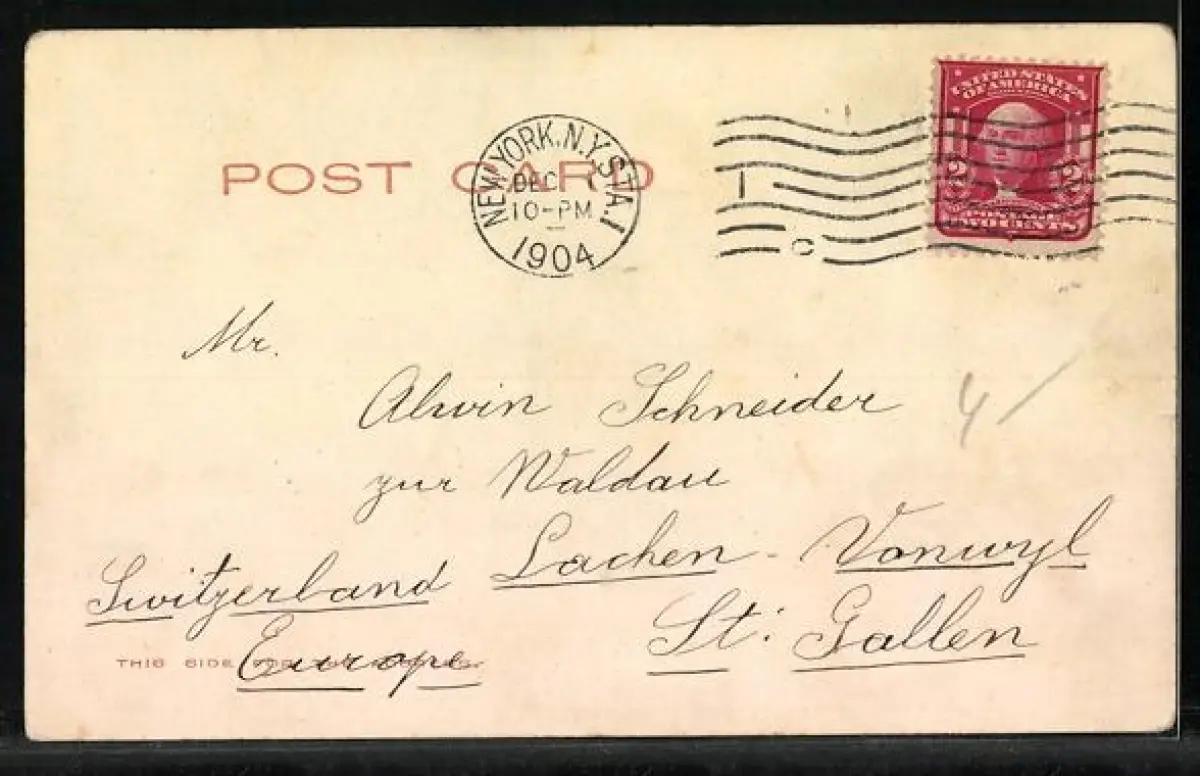 POST CARD
NEW YORK, N.Y. STA. 1
DEC
10-PM
1904
UNITED STATES
OF AMERICA
2 2
POSTAGE
TWO CENTS
Mr.
Alwin Schneider
zur Waldau
Lachen - Vonwyl
St: Gallen
Switzerland
Europe
THIS SIDE FOR
4/